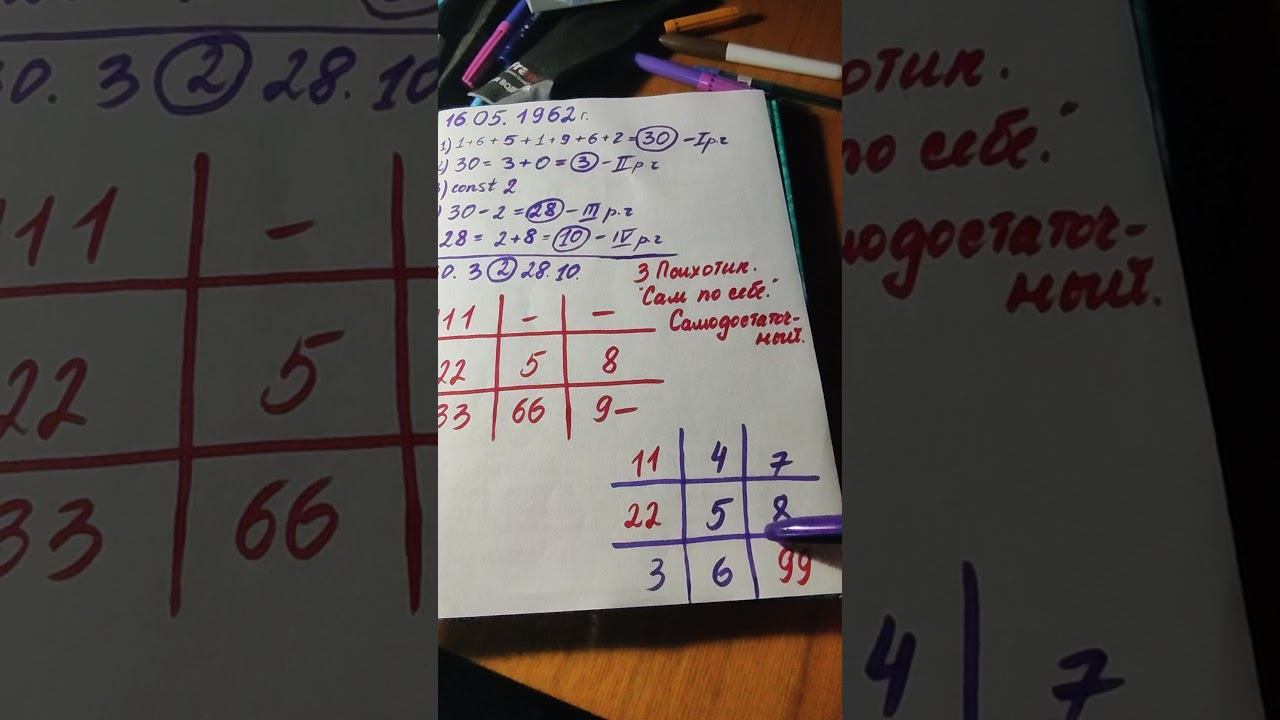 16.05. 1962 г.
1) 1+6+5+1+9+6+2=30 -I р.ч
) 30 = 3+0=3 -II р.ч
) const 2
) 30-2=28 - III р.ч
28= 2+8=10 - IV р.ч
0. 3 2 28. 10.
3 Психотип.
"Сам по себе."
Самодостаточ-
ный.
11 - -
22 5 8
33 66 9-
11 4 7
22 5 8
3 6 99